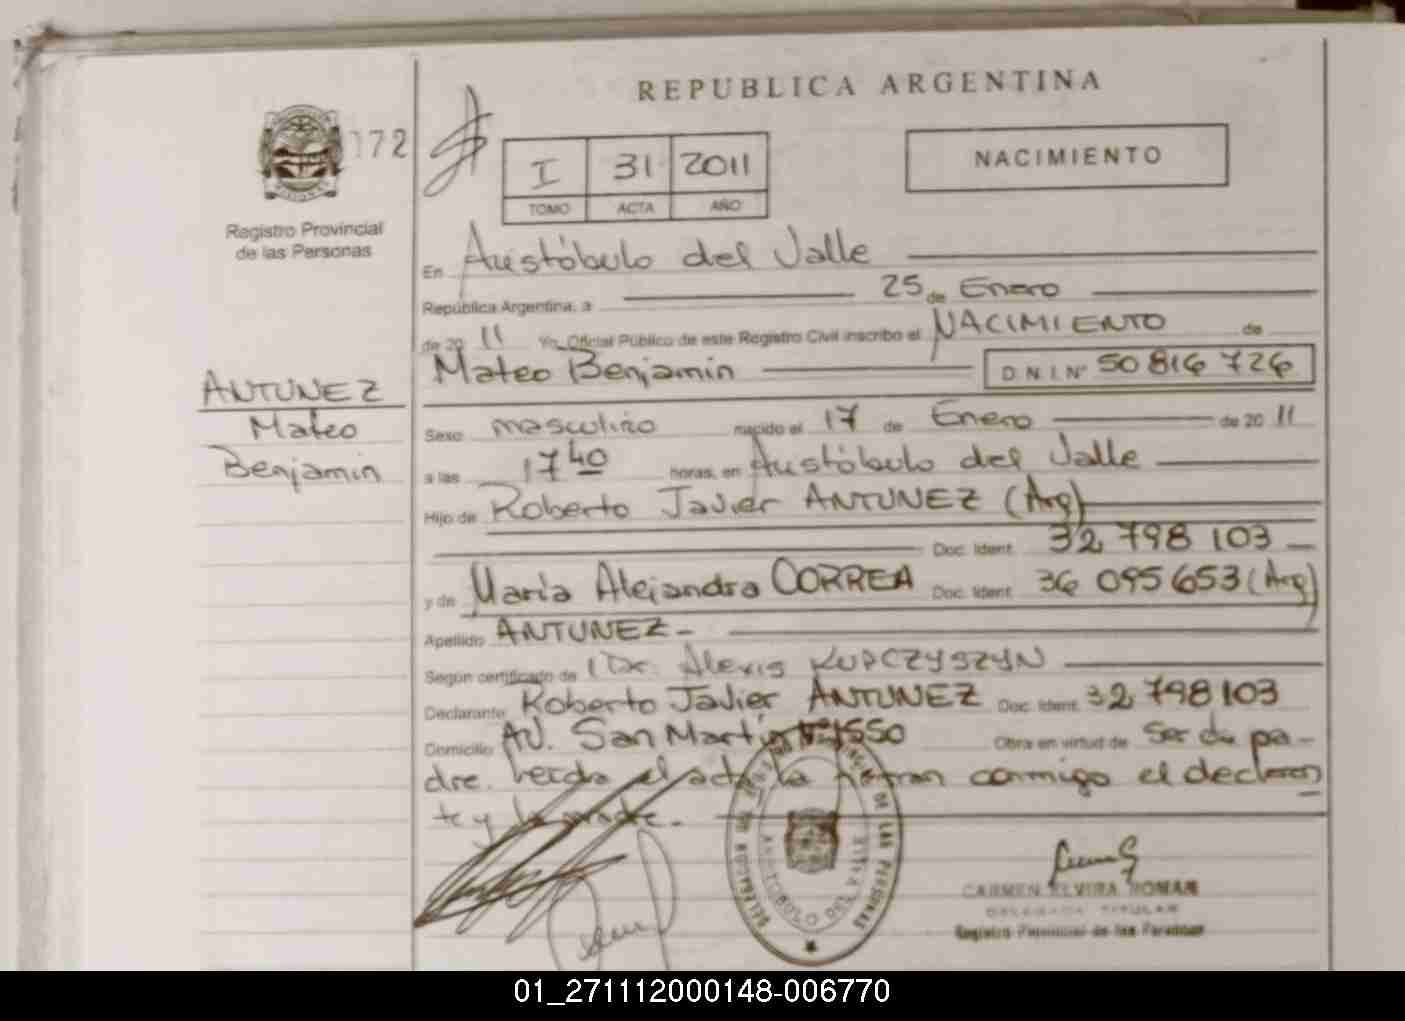 REPUBLICA ARGENTINA
172
Registro Provincial
de las Personas
I 31 2011
TOMO ACTA AÑO
NACIMIENTO
En Aristóbulo del Valle
República Argentina, a 25 de Enero
de 20 11 Yo, Oficial Público de este Registro Civil inscribo el NACIMIENTO de
Mateo Benjamin D.N.I. Nº 50 816 726
ANTUNEZ
Mateo
Benjamin
Sexo masculino nacido el 17 de Enero de 20 11
a las 17 40 horas, en Aristóbulo del Valle
Hijo de Roberto Javier ANTUNEZ (Arg)
Doc. Ident. 32 798 103
y de María Alejandra CORREA Doc. Ident. 36 095 653 (Arg)
Apellido ANTUNEZ -
Según certificado de Dr. Alexis KUPCZYSZYN
Declarante Roberto Javier ANTUNEZ Doc. Ident. 32 798 103
Domicilio AV. San Martín Nº 1550 Obra en virtud de ser du pa-
dre. Leída el acta la firman conmigo el declaran
te y la madre.
DE LAS PERSONAS
ARISTOBULO DEL VALLE
CARMEN ELVIRA ROMAN
DELEGADA TITULAR
Registro Provincial de las Personas
01_271112000148-006770